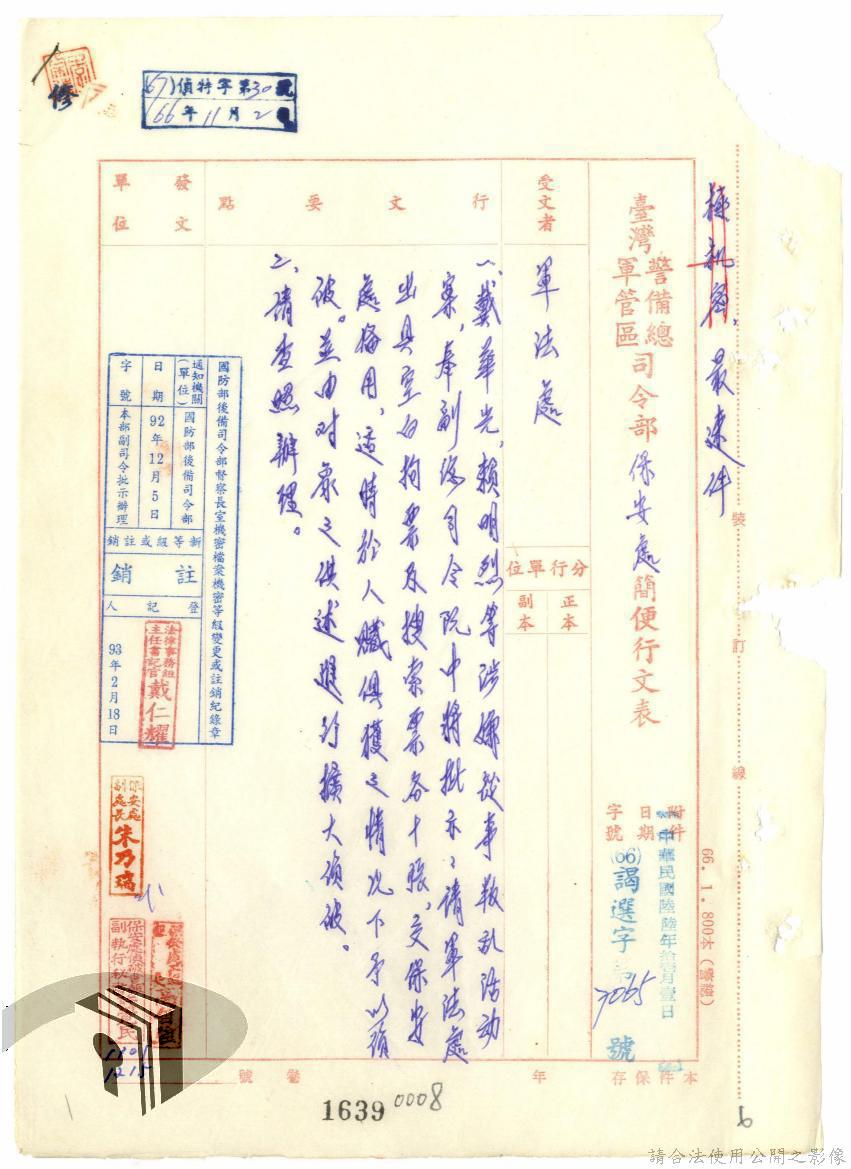 (67)偵特字第30號
66年11月2
修
極機密、最速件
臺灣警備總司令部
軍管區
保安處簡便行文表
附件
日期
字號
中華民國陸陸年拾壹月壹日
(66)謁選字
7065
號
受文者
軍法處
分行單位
正本
副本
行文要點
一、戴華光、賴明烈等涉嫌從事叛亂活動
案,奉副總司令阮中將批示:請軍法處
出具空白拘票及搜索票各十張,交保安
處備用,適時於人贓俱獲之情況下予以偵
破。並由対象之供述進行擴大偵破。
二、請查照辦理。
發文單位
國防部後備司令部督察長室機密檔案機密等級變更或註銷紀錄章
通知機關(單位)
國防部後備司令部
日期
92年12月5日
字號
本部副司令批示辦理
新等級或註銷
註銷
登記人
法律事務組
主任書記官
戴仁耀
93年2月18日
保安處
副處長
朱乃瑞
副執行秘
1101
1215
本件保存
年
號
裝
訂
線
66.1.800本
1639
0008
6
請合法使用公開之影像